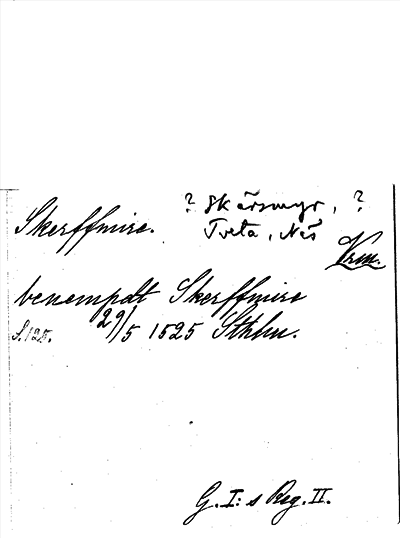 Skerffmire.
? Skärsmyr, ?
Tveta, Näs
Vrm.
benempdt Skerffmire
S. 125. 29/5 1525 Sthlm.
G. I:s Reg. II.